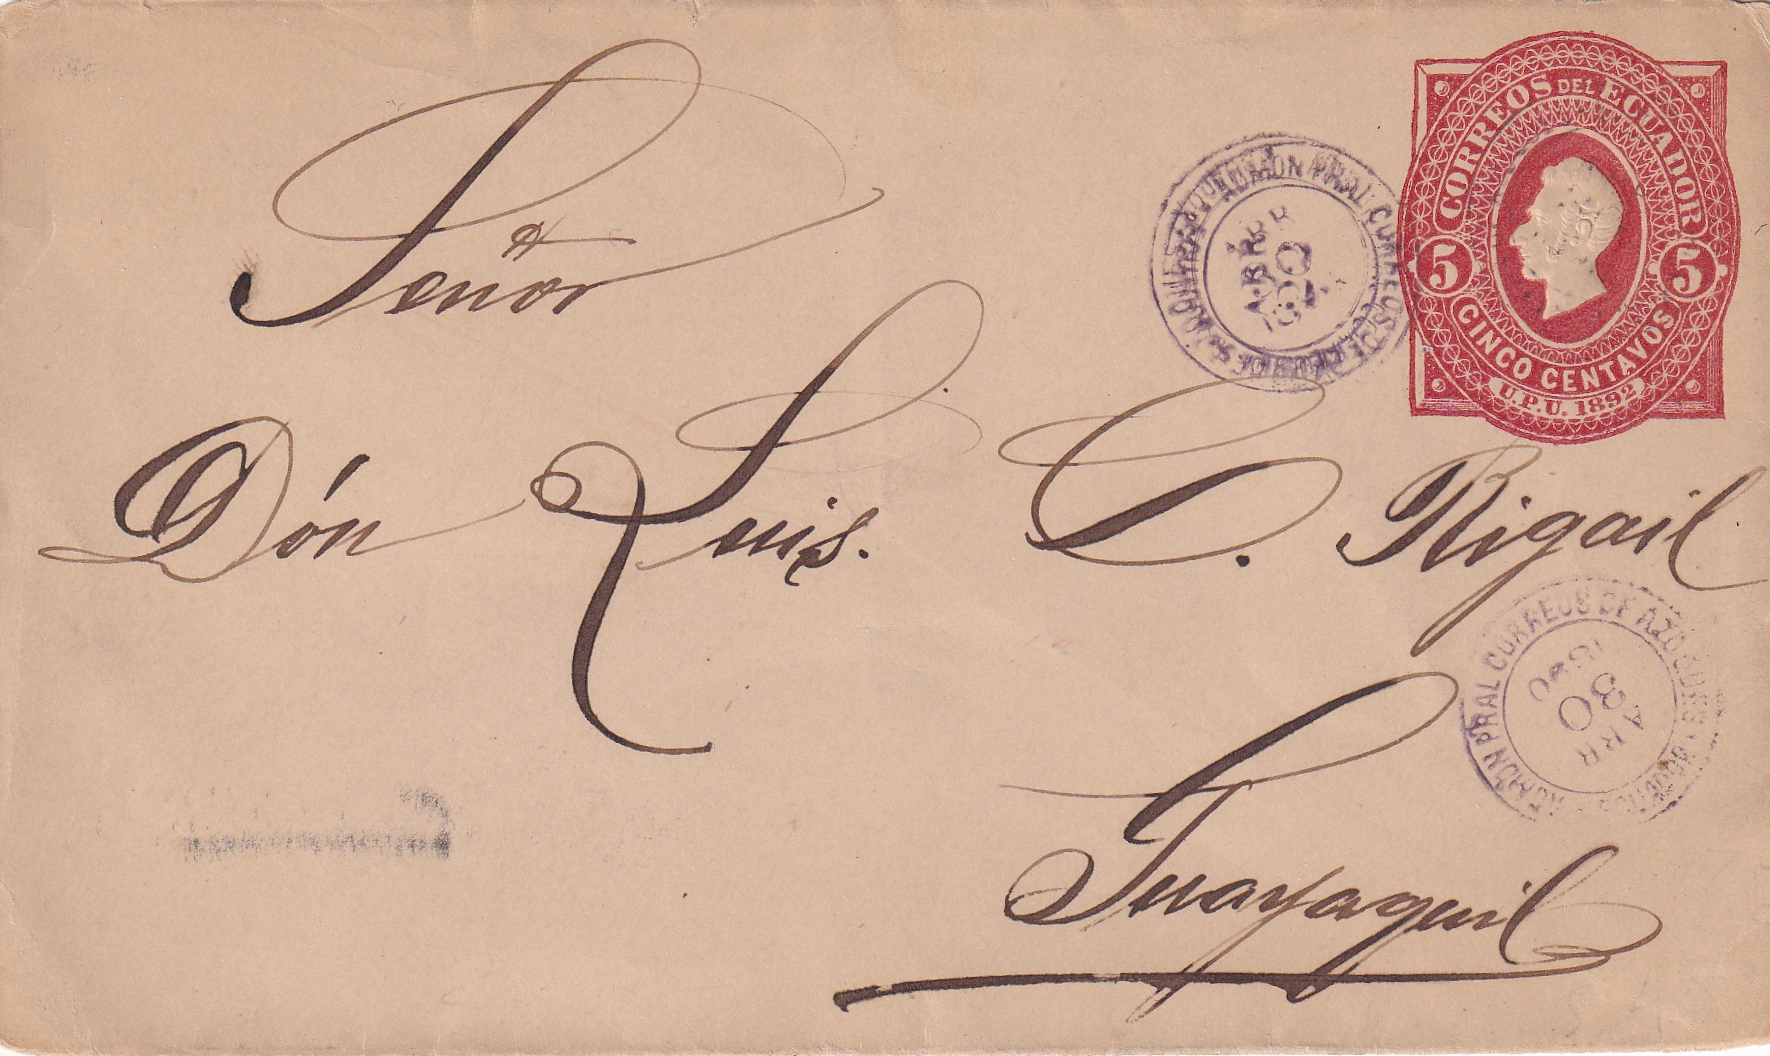 CORREOS DEL ECUADOR
5 5
CINCO CENTAVOS
U.P.U. 1892
PRAL CORREOS DE
ABR
Señor
Dón Luis. C. Rigail
PRAL CORREOS DE AZOGUES
ECUADOR
ABR
30
Guayaquil